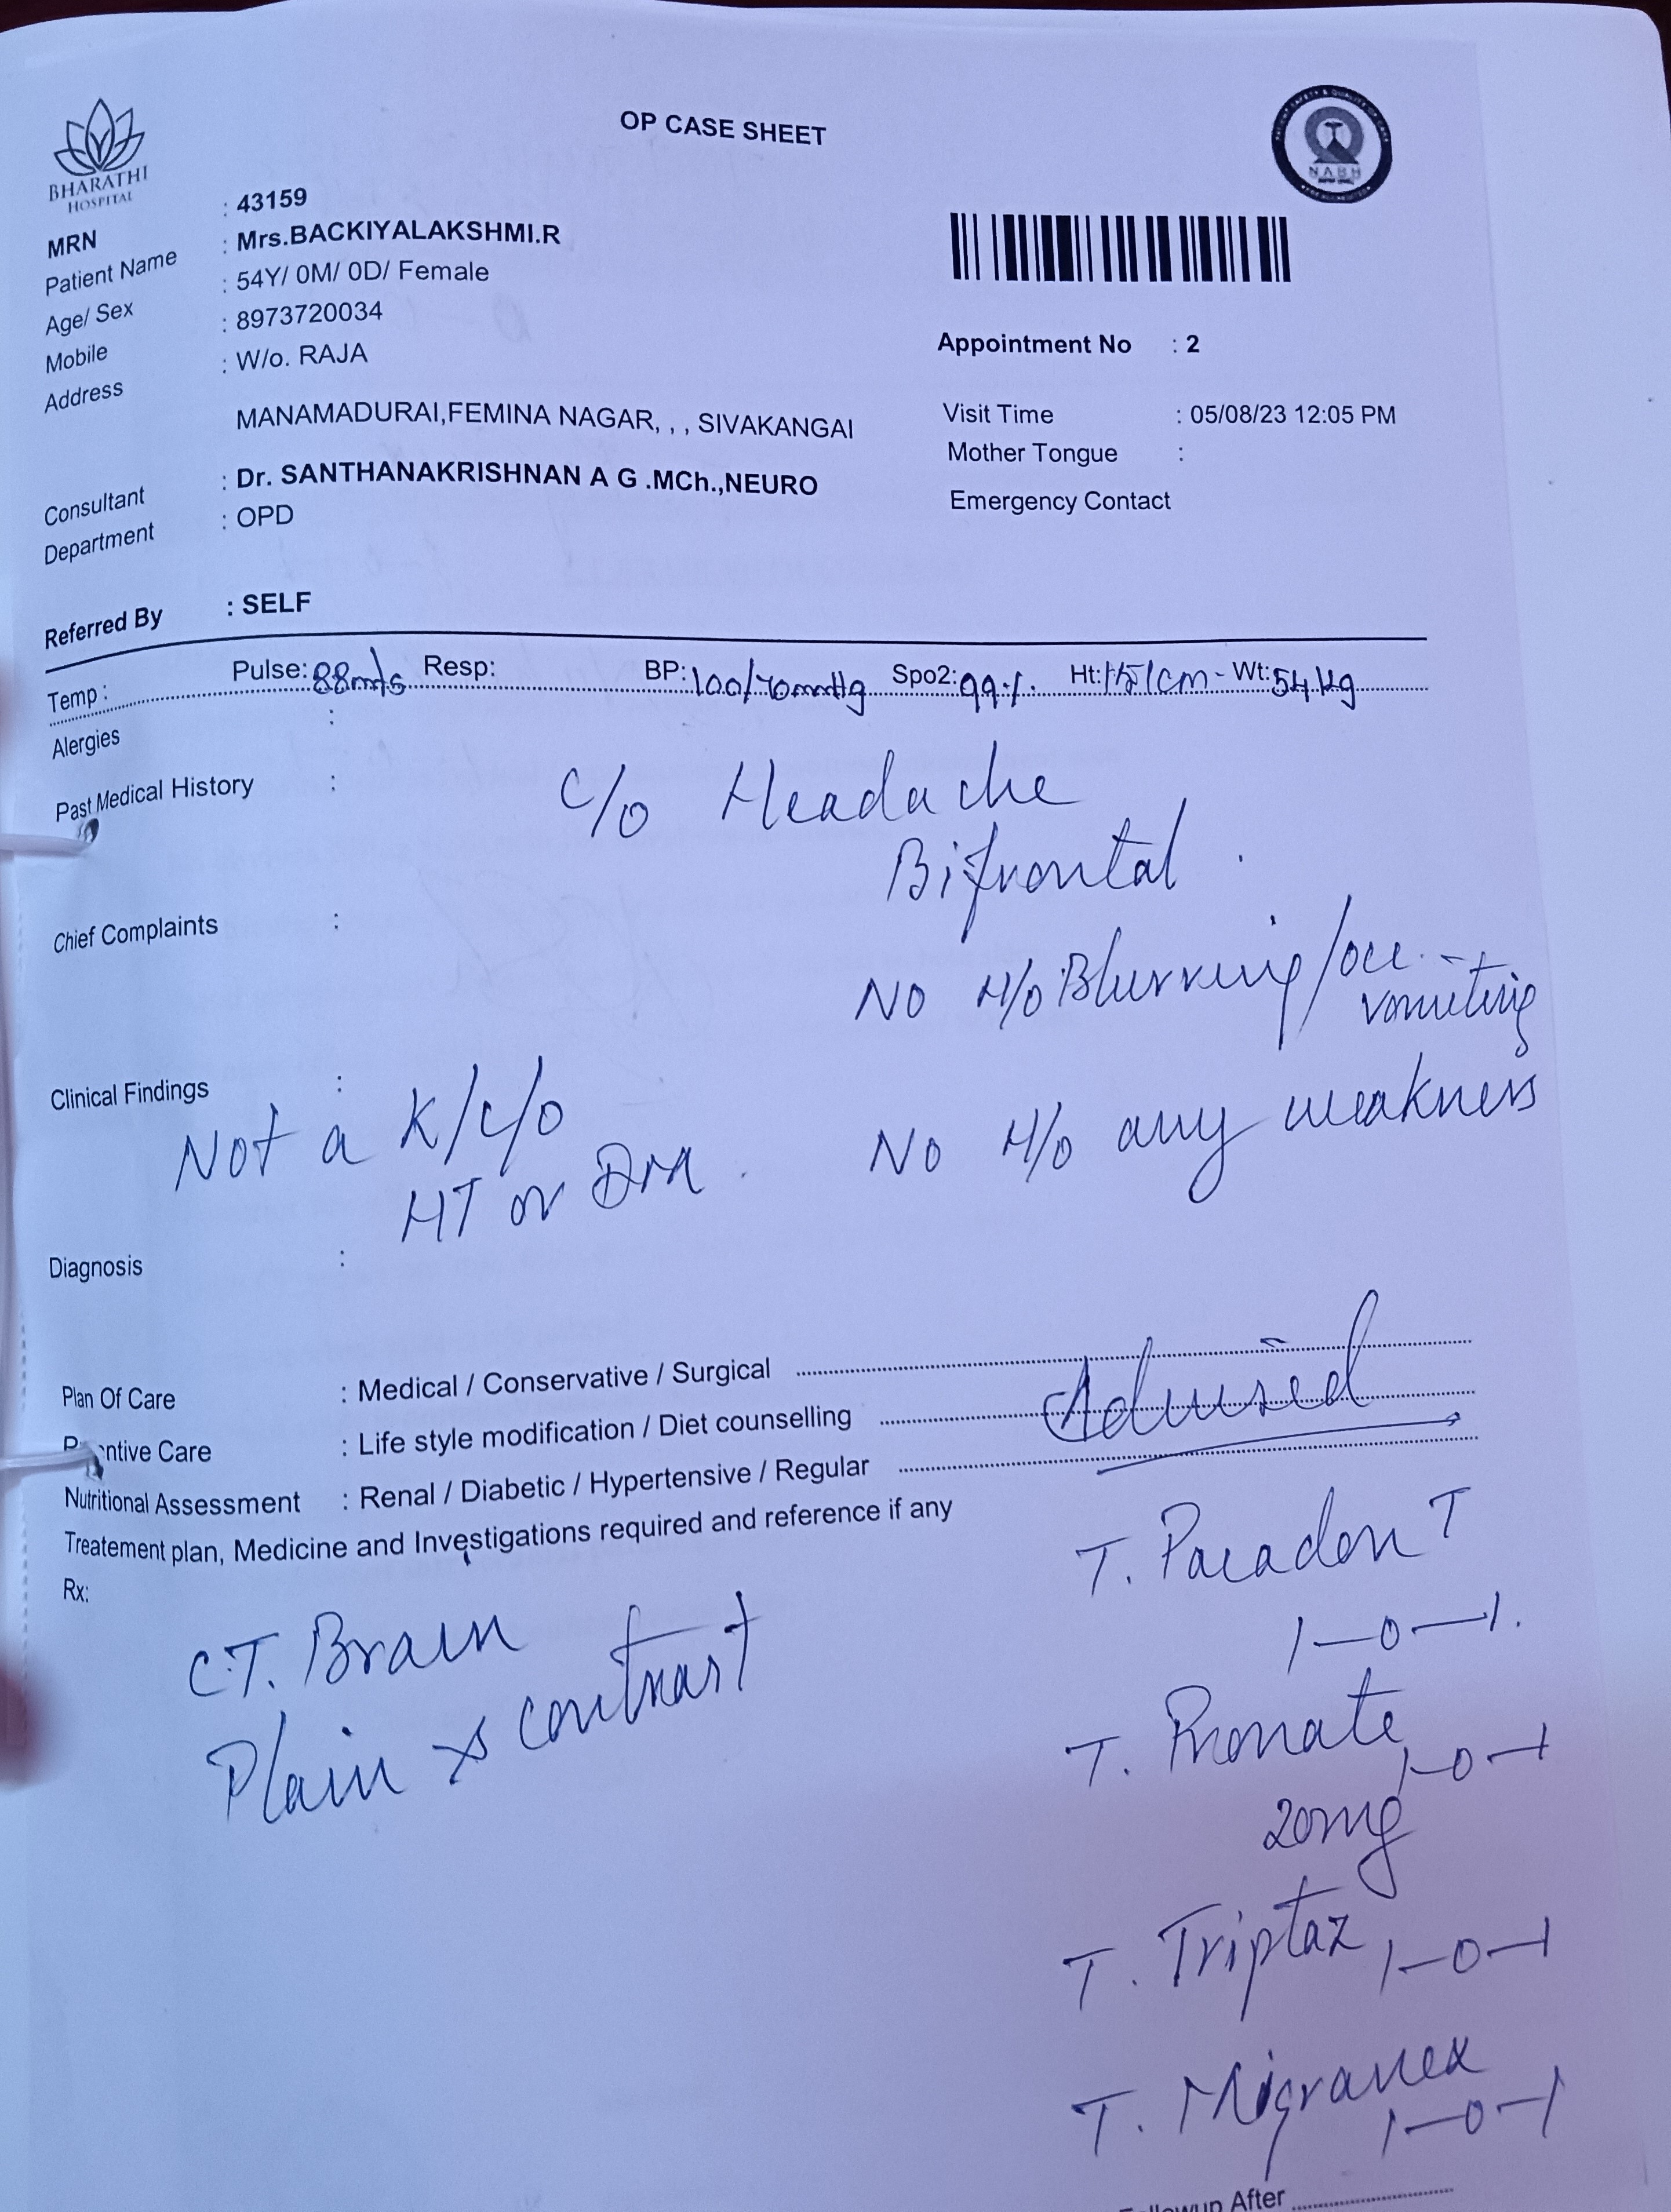 OP CASE SHEET
BHARATHI
HOSPITAL
NABH
MRN : 43159
Patient Name : Mrs.BACKIYALAKSHMI.R
Age/ Sex : 54Y/ 0M/ 0D/ Female
Mobile : 8973720034
Address : W/o. RAJA
Appointment No : 2
MANAMADURAI,FEMINA NAGAR, , , SIVAKANGAI
Visit Time : 05/08/23 12:05 PM
Mother Tongue :
Consultant : Dr. SANTHANAKRISHNAN A G .MCh.,NEURO
Emergency Contact
Department : OPD
Referred By : SELF
Temp : Pulse: 88 Resp: BP: 100/70mmHg Spo2: 99% Ht: 151cm Wt: 54 kg
Alergies :
Past Medical History :
C/o Headache
Bifrontal
Chief Complaints :
No H/o Blurring/occ.
vomiting
Clinical Findings :
Not a K/c/o
HT or DM.
No H/o any weakness
Diagnosis :
Plan Of Care : Medical / Conservative / Surgical
Advised
ntive Care : Life style modification / Diet counselling
Nutritional Assessment : Renal / Diabetic / Hypertensive / Regular
Treatement plan, Medicine and Investigations required and reference if any
Rx:
C.T. Brain
Plain contrast
T. T
1-0-1.
T. 1-0-1
20mg
T. Triptaz 1-0-1
T. Migranex
1-0-1
After